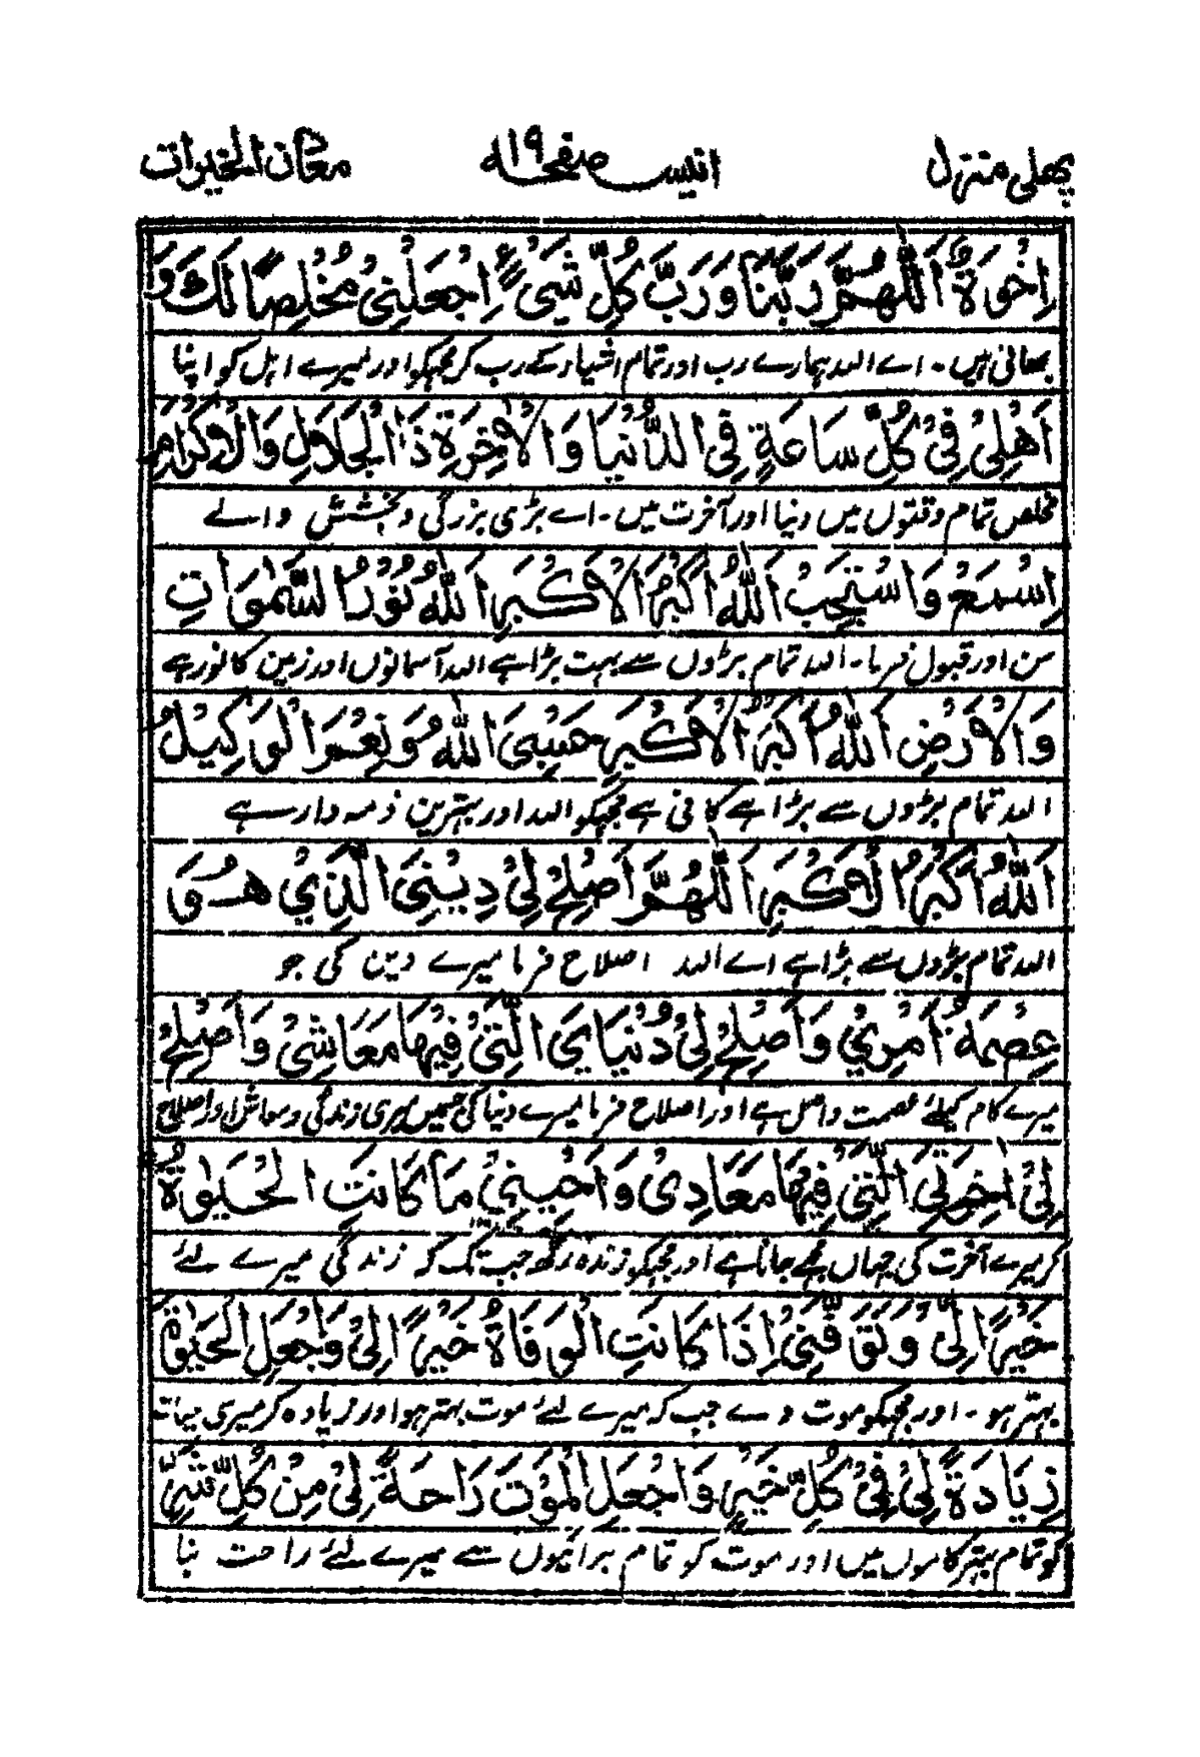 پھلی منزل انیس صفحہ ۱۹ معدن الخیرات
اِخْوَةٌ اَللّٰهُمَّ رَبَّنَا وَرَبَّ كُلِّ شَيْءٍ اِجْعَلْنِيْ مُخْلِصًا لَكَ وَ
بھائی ہیں۔ اے اللہ ہمارے رب اور تمام اشیاء کے رب کر مجھکو اور میرے اہل کو اپنا
اَهْلِيْ فِيْ كُلِّ سَاعَةٍ فِي الدُّنْيَا وَالْاٰخِرَةِ ذَا الْجَلَالِ وَالْاِكْرَامِ
مخلص تمام وقتوں میں دنیا اور آخرت میں۔ اے بڑی بزرگی و بخشش والے
اِسْمَعْ وَاسْتَجِبْ اَللّٰهُ اَكْبَرُ الْاَكْبَرِ اَللّٰهُ نُوْرُ السَّمٰوَاتِ
سن اور قبول فرما۔ اللہ تمام بڑوں سے بہت بڑا ہے اللہ آسمانوں اور زمین کا نور ہے
وَالْاَرْضِ اَللّٰهُ اَكْبَرُ الْاَكْبَرِ حَسْبِيَ اللّٰهُ وَنِعْمَ الْوَكِيْلُ
اللہ تمام بڑوں سے بڑا ہے کافی ہے مجھکو اللہ اور بہترین ذمہ دار ہے
اَللّٰهُ اَكْبَرُ الْاَكْبَرِ اَللّٰهُمَّ اَصْلِحْ لِيْ دِيْنِيَ الَّذِيْ هُوَ
اللہ تمام بڑوں سے بڑا ہے اے اللہ اصلاح فرما میرے دین کی جو
عِصْمَةُ اَمْرِيْ وَاَصْلِحْ لِيْ دُنْيَايَ الَّتِيْ فِيْهَا مَعَاشِيْ وَاَصْلِحْ
میرے کام کیلئے عصمت و اصل ہے اور اصلاح فرما میرے دنیا کی جسمیں میری زندگی و معاش اور اصلاح
لِيْ اٰخِرَتِيَ الَّتِيْ فِيْهَا مَعَادِيْ وَاَحْيِنِيْ مَا كَانَتِ الْحَيٰوةُ
کر میرے آخرت کی جہاں مجھے جانا ہے اور مجھکو زندہ رکھ جب تک کہ زندگی میرے لئے
خَيْرًا لِيْ وَتَوَفَّنِيْ اِذَا كَانَتِ الْوَفَاةُ خَيْرًا لِيْ وَاجْعَلِ الْحَيٰوةَ
بہتر ہو۔ اور مجھکو موت دے جب کہ میرے لئے موت بہتر ہو اور زیادہ کر میری حیات
زِيَادَةً لِيْ فِيْ كُلِّ خَيْرٍ وَاجْعَلِ الْمَوْتَ رَاحَةً لِيْ مِنْ كُلِّ شَرٍّ
کو تمام بہتر کاموں میں اور موت کو تمام برائیوں سے میرے لئے راحت بنا